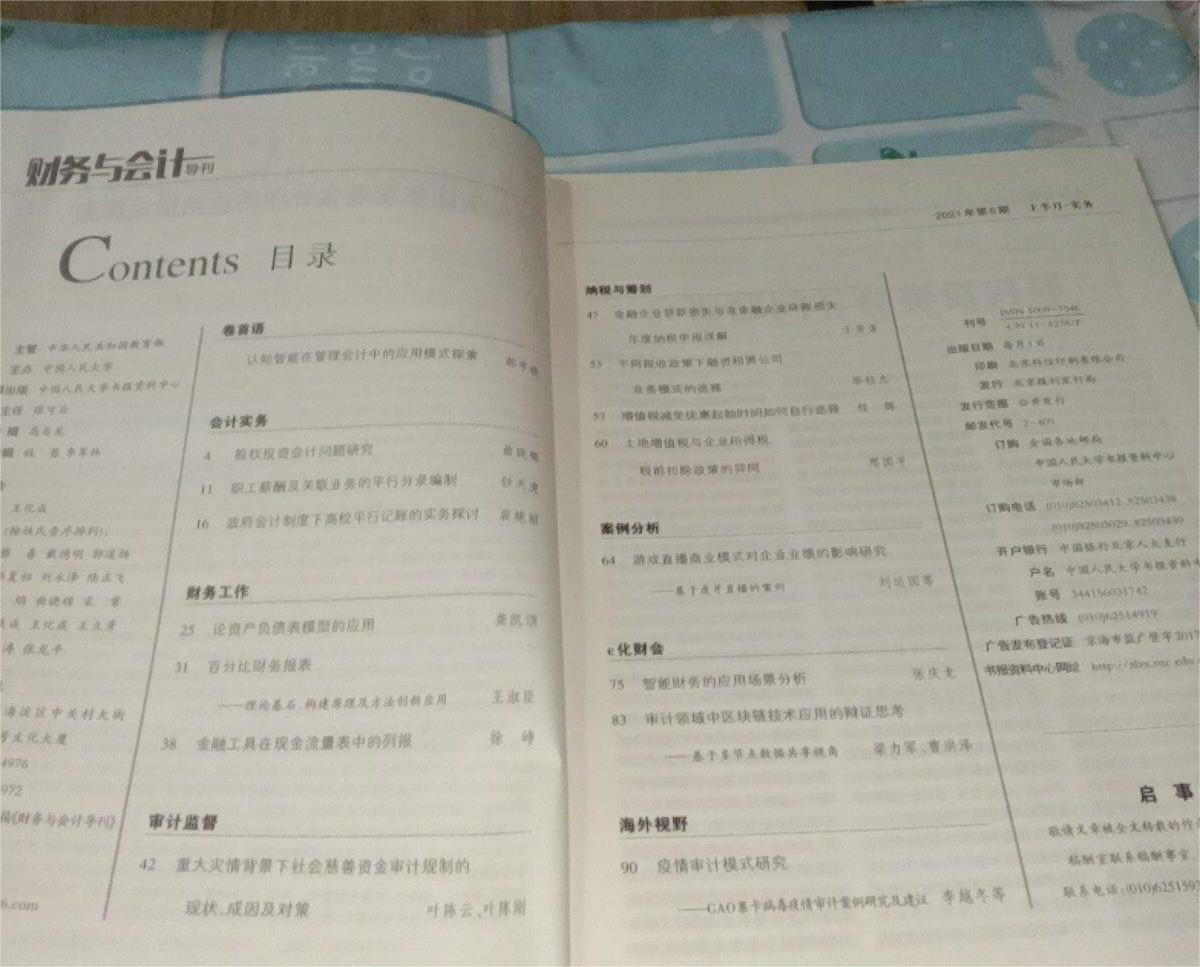 财务与会计导刊
Contents 目录
主管 中华人民共和国教育部
主办 中国人民大学
出版 中国人民大学书报资料中心
王化成
(按姓氏音序排列):
戴德明 郭道扬
刘永泽 陆正飞
王化成 王立彦
海淀区中关村大街
号文化大厦
4976
972
《财务与会计导刊》
6.com
卷首语
认知智能在管理会计中的应用模式探索
会计实务
4 股权投资会计问题研究 曲晓辉
11 职工薪酬及关联业务的平行分录编制
16 政府会计制度下高校平行记账的实务探讨 裴艳丽
财务工作
25 论资产负债表模型的应用 龚凯颂
31 百分比财务报表
——理论基石、构建原理及方法创新应用 王淑臣
38 金融工具在现金流量表中的列报 徐峥
审计监督
42 重大灾情背景下社会慈善资金审计规制的
现状、成因及对策 叶陈云、叶陈刚
2021年第6期 上半月·实务
纳税与筹划
47 金融企业贷款损失与非金融企业坏账损失
年度纳税申报详解
53 不同税收政策下融资租赁公司
业务模式的选择
57 增值税减免优惠起始时间如何自行选择
60 土地增值税与企业所得税
税前扣除政策的异同
案例分析
64 游戏直播商业模式对企业业绩的影响研究
——基于虎牙直播的案例 刘运国等
e化财会
75 智能财务的应用场景分析 张庆龙
83 审计领域中区块链技术应用的辩证思考
——基于多节点数据共享视角 梁力军、曹洪泽
海外视野
90 疫情审计模式研究
——GAO寨卡病毒疫情审计案例研究及建议 李越冬等
刊号 ISSN 1009-7546
CN 11-4278/F
出版日期 每月1日
印刷 北京科信印刷有限公司
发行 北京报刊发行局
发行范围 公开发行
邮发代号 2-409
订购 全国各地邮局
中国人民大学书报资料中心
市场部
订购电话 (010)82503412、82503438
(010)82503029、82503439
开户银行 中国银行北京人大支行
户名 中国人民大学书报资料
账号 344156031742
广告热线 (010)62514919
广告发布登记证 京海市监广登字2017
书报资料中心网址
启事
敬请文章被全文转载的作
稿酬室联系稿酬事宜
联系电话:(010)6251593